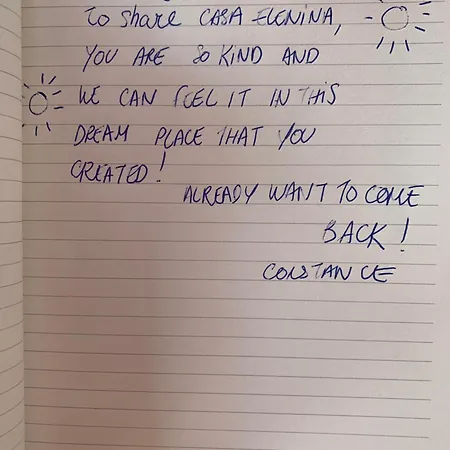 to share CASA ELENINA,
YOU ARE SO KIND AND
WE CAN FEEL IT IN THIS
DREAM PLACE THAT YOU
CREATED!
ALREADY WANT TO COME
BACK!
CONSTANCE